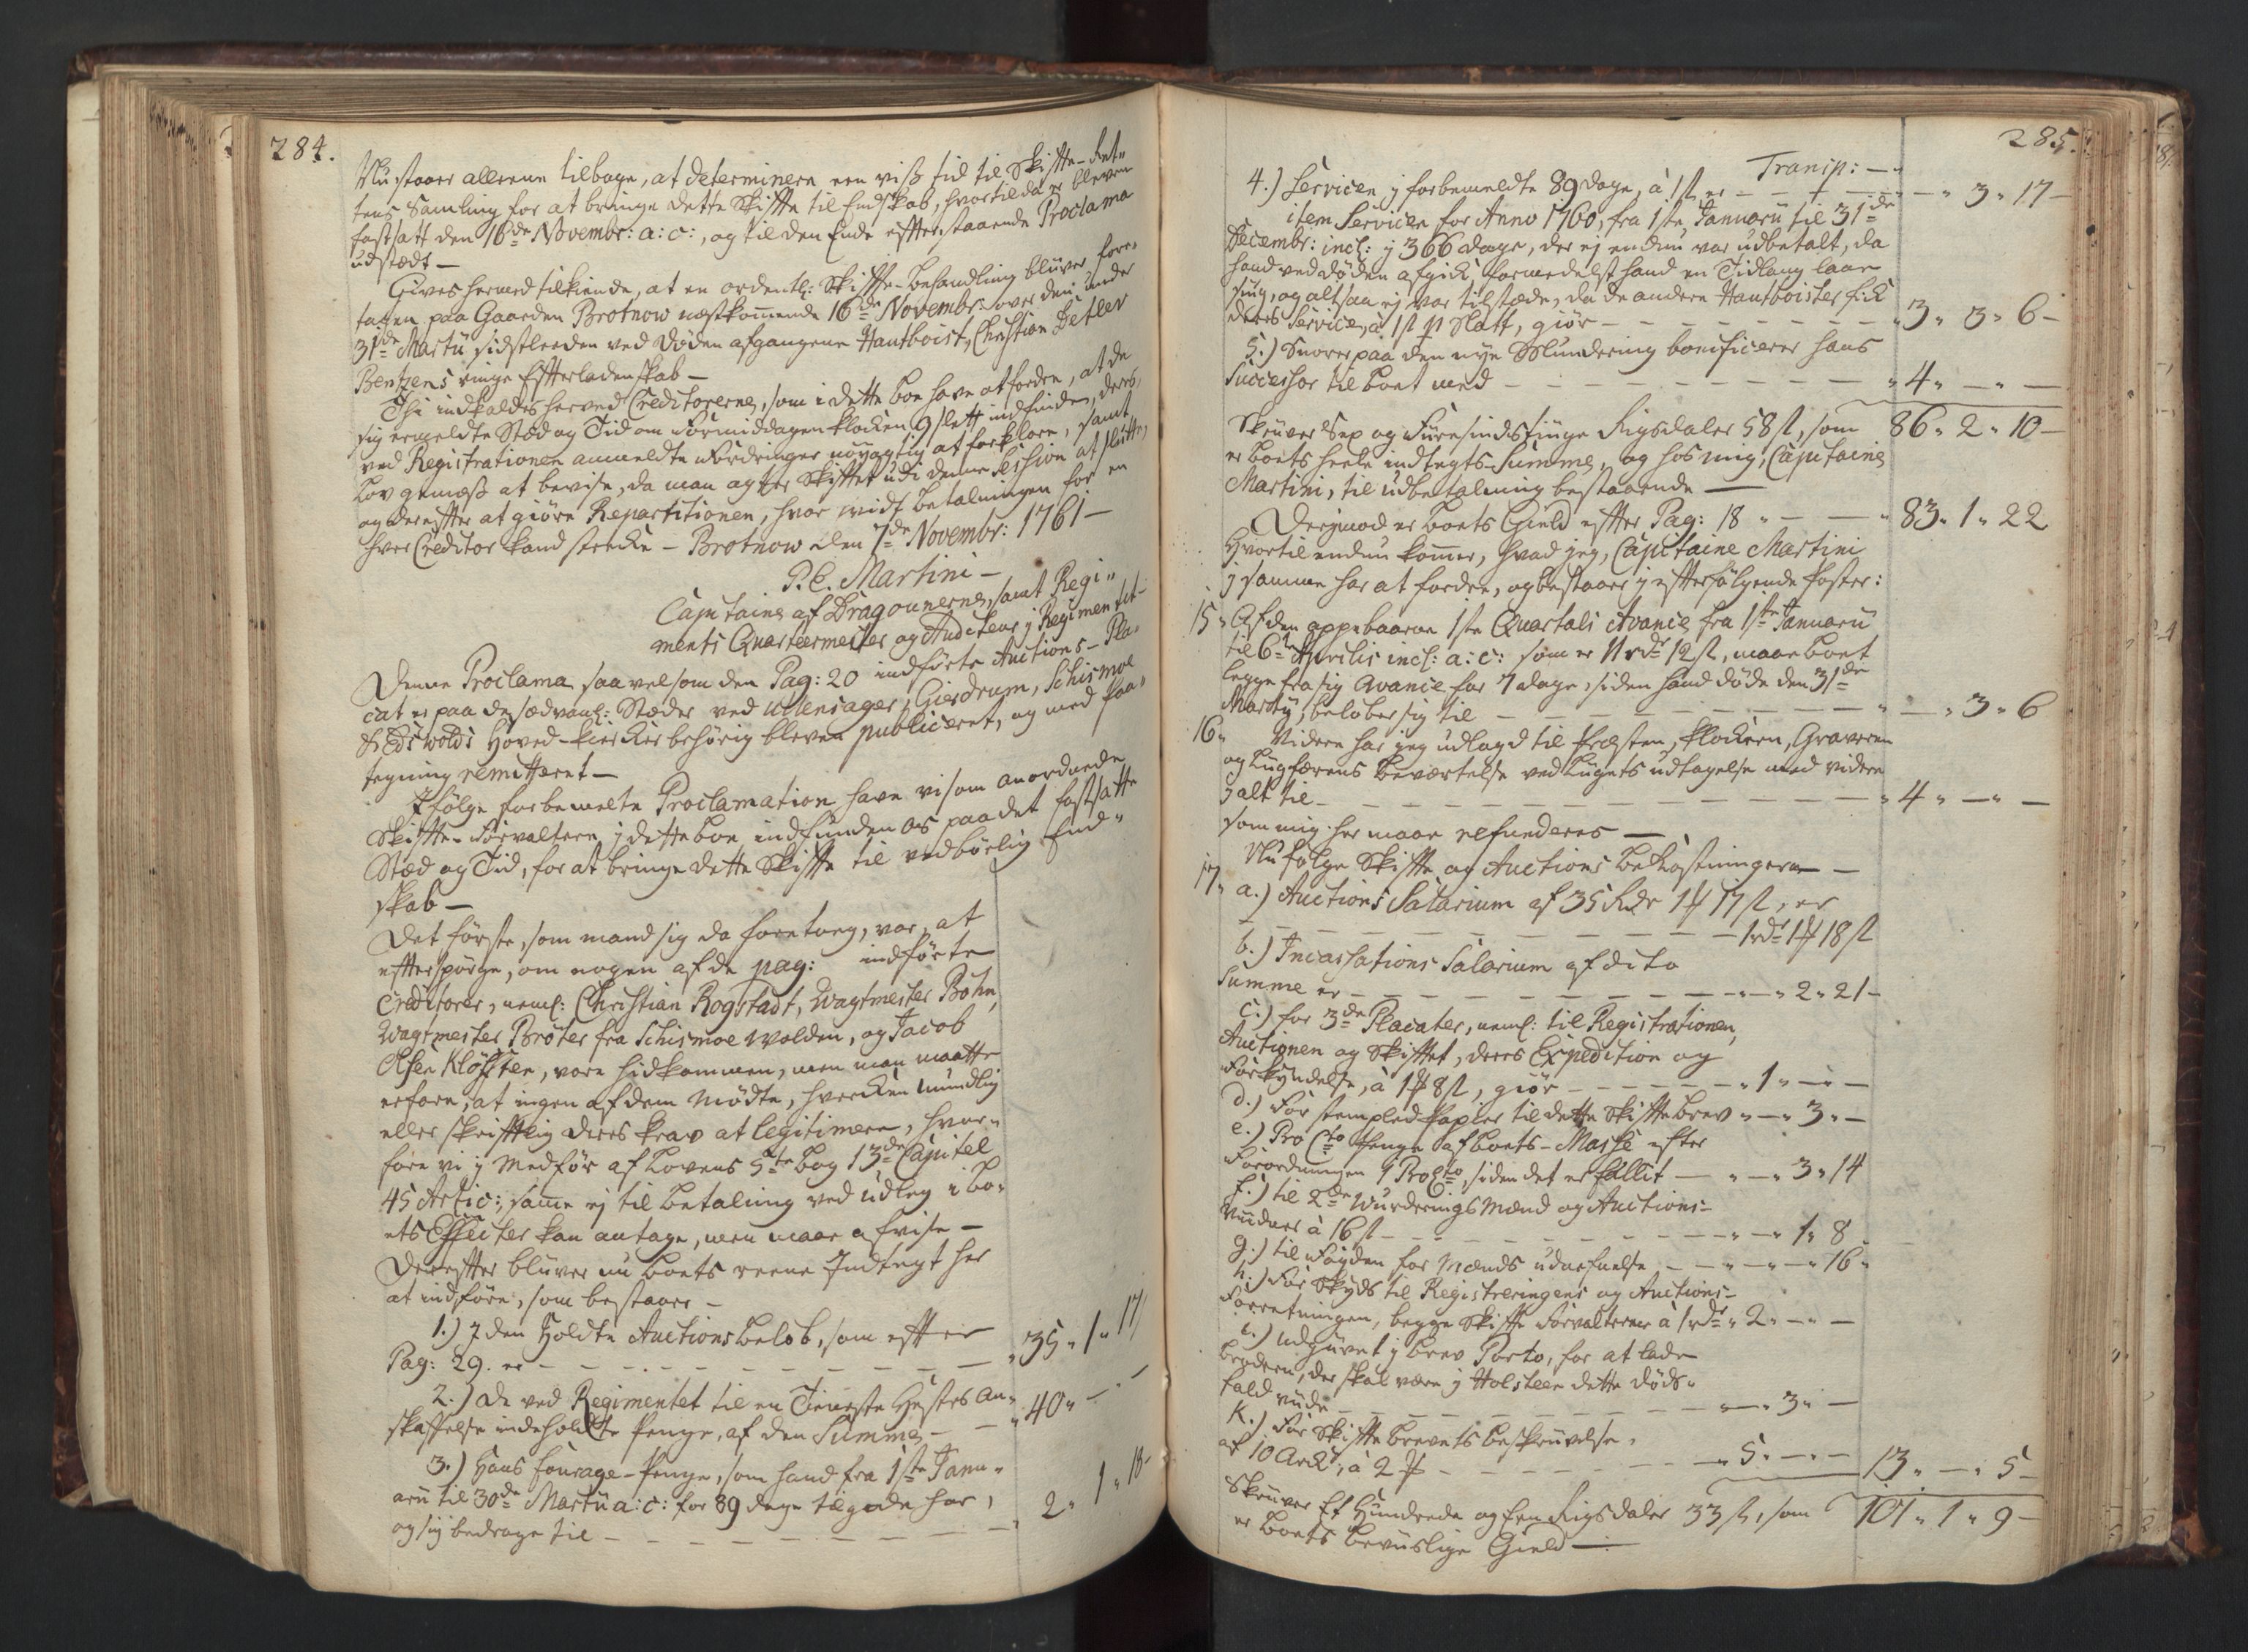 284.
Nu staaer alleene tilbage, at determinere een viss tid til Skifte-Ret-
tens Samling for at bringe dette Skifte til Endskab, hvortil da er bleven
fastsatt den 16de Novembr: a: c:, og til den Ende efterstaaende Proclama
udstædt —
Gives hermed tilkiende, at en ordentl: Skifte-behandling bliver fore-
tagen paa Gaarden Brotnow næstkommende 16de Novembr: over den under
31de Martii sidstleeden ved Døden afgangene Hautboist, Christian Detlev
Bentzens ringe Efterladenskab —
Thi indkaldes herved Creditorerne, som i dette boe have at fordre, at de
sig ermeldte Stæd og Tid om Formiddagen klocken 9 slett indfinder, deres
ved Registrationen anmeldte Fordringer nöyagtig at forklare, samt
Lov gemæss at bevise, da man agter Skiftet udi denne Session at slutte,
og derefter at giöre Repartitionen, hvor vidt betalningen for en
hver Creditor kand strecke — Brotnow den 7de Novembr: 1761 —
P. C. Martini —
Capitaine af Dragounerne, samt Regi-
ments Quarteermester og Auditeur j Regimentet —
Denne Proclama saavelsom den Pag: 20 indførte Auctions-Pla-
cat er paa de sædvanl: Stæder ved Ullensager, Gierdrum, Schismoe
& Edswolds Hoved-kirker behörig bleven publiceret, og med paa-
tegning remitteret —
I fölge forbemelte Proclamation have vi som anordnede
Skifte-Forvaltere j dette boe indfunden os paa det fastsatte
Stæd og Tid, for at bringe dette Skifte til vedbörlig End-
skab —
Det förste, som mand sig da foretoeg, var, at
efterspörge, om nogen af de pag: indförte
Creditorer, neml: Christian Rogstadt, Wagtmester Bohn,
Wagtmester Broter fra Schismoe Wolden, og Jacob
Olsen Klöfften, vare hidkommen, men man maatte
erfare, at ingen af dem mödte, hvercken mundlig
eller skrifftlig deres krav at legitimere, hvor-
fore vi j Medför af Lovens 5te bog 13de Capitel
45 Artic:, samme ej til betaling ved udleg i bo-
ets Effecter kan antage, men maae afvise —
Derefter bliver nu boets reene Indtegt her
at indföre, som bestaaer —
1.) I den holdte Auctions belöb, som efter
Pag: 29. er — — — — — — — " 35 " 1 " 17
2.) De ved Regimentet til en Tieneste Hestes an-
skaffelse indeholdte Penge, af den Summa — — " 40 " — " —
3.) Hans fourage-Penge, som hand fra 1ste Janu-
arii til 30de Martii a: c: for 89 dage tilgode har,
og sig bedrager til — — — — — — — " 2 " 1 " 18
285.
Transp: —
4.) Servicen j forbemeldte 89 dage, à 1 s er — — — " 3 " 17 —
item Servicen for Anno 1760, fra 1ste Januarii til 31de
Decembr: incl: j 366 dage, der ej endnu var udbetalt, da
hand ved döden afgick formedelst hand en Tidlang laae
syug, og altsaa ej var tilstæde, da de andere Hautboister fick
deres Service, à 1 s p Natt, giör — — — — " 3 " 3 " 6 —
5.) Snorer paa den nye Mundering bonificerer hans
Successor til boet med — — — — — — " 4 " — " —
Skriver Sex og Fiiresindstiuge Rigsdaler 58 s, som 86 " 2 " 10 —
er boets heele indtegts-Summe, og hos mig, Capitaine
Martini, til udbetalning bestaaende —
Derimod er boets Gield efter Pag: 18 " — — " 83 " 1 " 22
Hvortil endnu kommer, hvad jeg, Capitaine Martini
j samme har at fordre, og bestaaer j efterfölgende poster:
15 " Af den oppebaarne 1ste Quartals Avance fra 1ste Januarii
til 6te Aprilis incl: a: c: som er 11 rdr 12 s, maae boet
legge fra sig Avance for 7 dage, siden hand döde den 31de
Martij, belöber sig til — — — — — — " — " 3 " 6
16 " Videre har jeg udlagd til Præsten, klockern, Graveren
og Liigfærens beværtelse ved Liigets udtagelse med videre
j alt til — — — — — — — — " 4 " — " —
som mig her maae refunderes —
Nu fölge Skifte og Auctions bekostningerne —
17 " a.) Auctions Salarium af 35 Rdr 1 ƒ 17 s, er
— — — — — — — — 1 rdr 1 ƒ 18 s
b.) Incassations Salarium af dito
Summe er — — — — — — — " — " 2 " 21 —
c.) for 3de Placater, neml: til Registrationen,
Auctionen og Skiftet, deres Expedition og
Forkyndelse, à 1 ƒ 8 s, giör — — — — " 1 " — " —
d.) For stempled Papier til dette Skiftebrev " — " 3 " —
e.) Pro Cto Penge af boets-Masse efter
Forordningen 1 Pro Cto, siden det er fallit — " — " 3 " 14
f.) til 2de Wurderings Mænd og Auctions-
Vidner à 16 s — — — — — — " — " 1 " 8
g.) til Fogden for Mænds udnefnelse — — " — " — " 16 "
h.) For Skyds til Registreringens og Auctions-
Forretningen, begge Skifte Forvalterne à 1 rdr " 2 " — " —
i.) Udgivet j brev Porto, for at lade
broderen, der skal være j Holsteen dette döds-
fald vide — — — — — — — " — " 3 " —
K.) For Skifte brevets beskrivelse,
af 10 Ark, à 2 ƒ — — — — — — " 5 " — " — 13 " — " 5 —
Skriver Et Hundrede og Een Rigsdaler 33 s, som 101 " 1 " 9 —
er boets beviislige Gield —